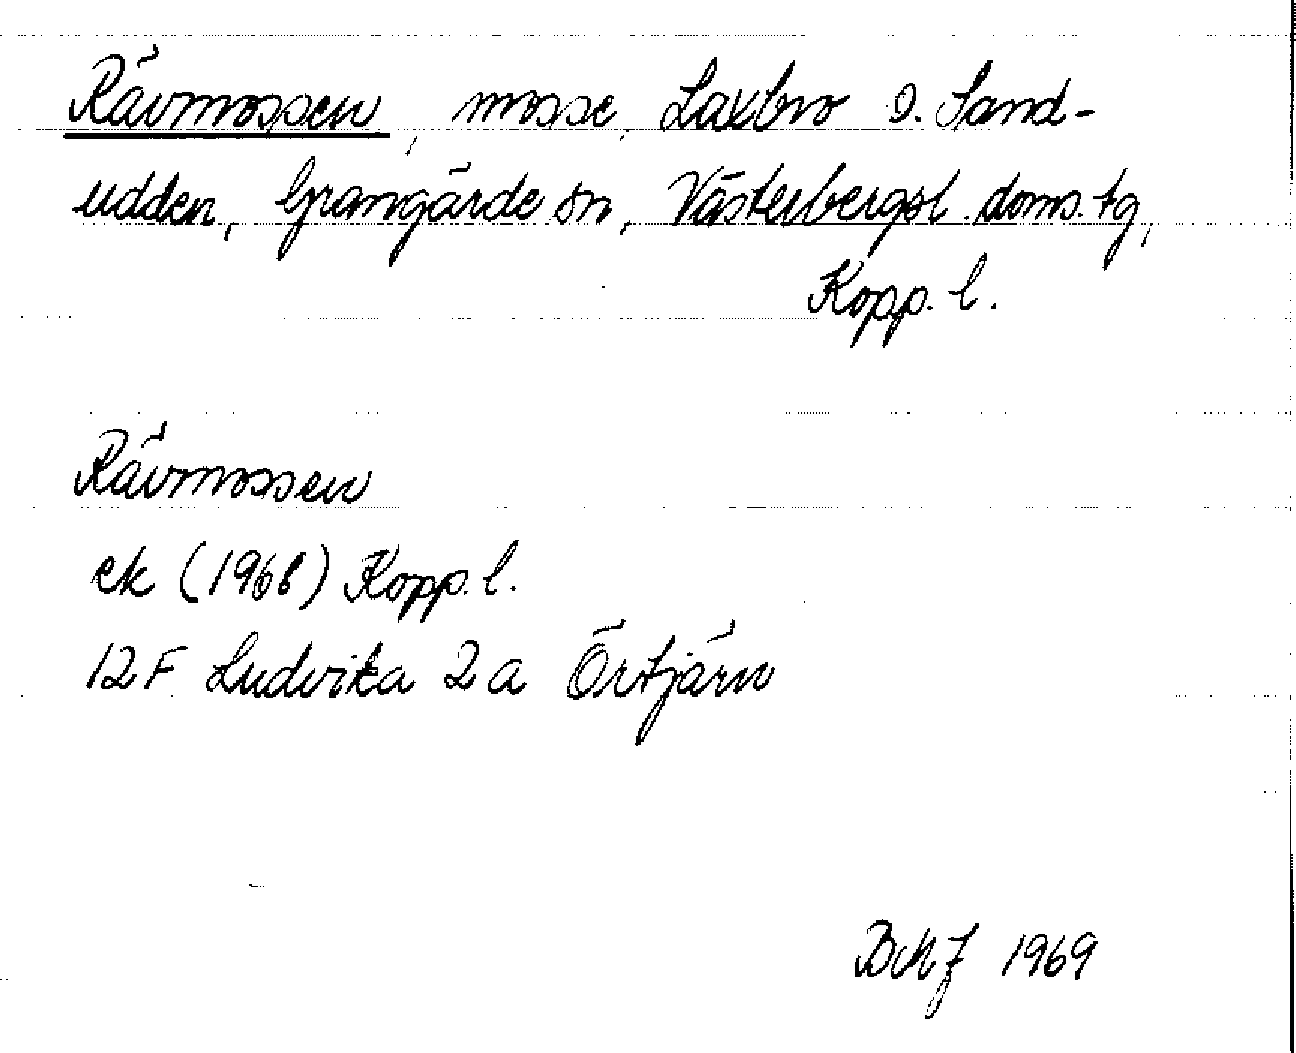 Rävmossen, mosse, Laxbro o. Sand-
udden, Grangärde sn, Västerbergsl. doms. tg,
Kopp. l.
Rävmossen
ek (1968) Kopp. l.
12F Ludvika 2a Örtjärn
BMJ 1969